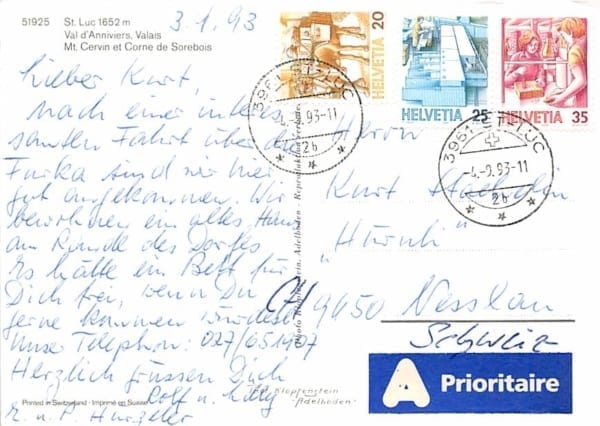 51925 St. Luc 1652 m
Val d'Anniviers, Valais
Mt. Cervin et Corne de Sorebois
3.9.93
Lieber Kurt,
nach einer interes
santen Fahrt über die
Furka sind wir hier
gut angekommen. Wir
bewohnen ein altes Haus
am Rande des Dorfes
Es hätte ein Bett für
Dich frei, wenn Du
gerne kommen würdest
Unser Telephon: 027/651907
Herzlich grüssen Dich
Rolf u.
R. u. P. Hurzeler
Printed in Switzerland - Imprimé en Suisse
Photo Klopfenstein, Adelboden - Reproduktion verboten
Klopfenstein
"Adelboden"
HELVETIA 20
HELVETIA 25
HELVETIA 35
3961 ST-LUC
-4.-9.93-11
2b
3961 ST-LUC
-4.-9.93-11
2b
Herrn
Kurt
"Hürnli"
CH 9650 Nesslau
Schweiz
A Prioritaire